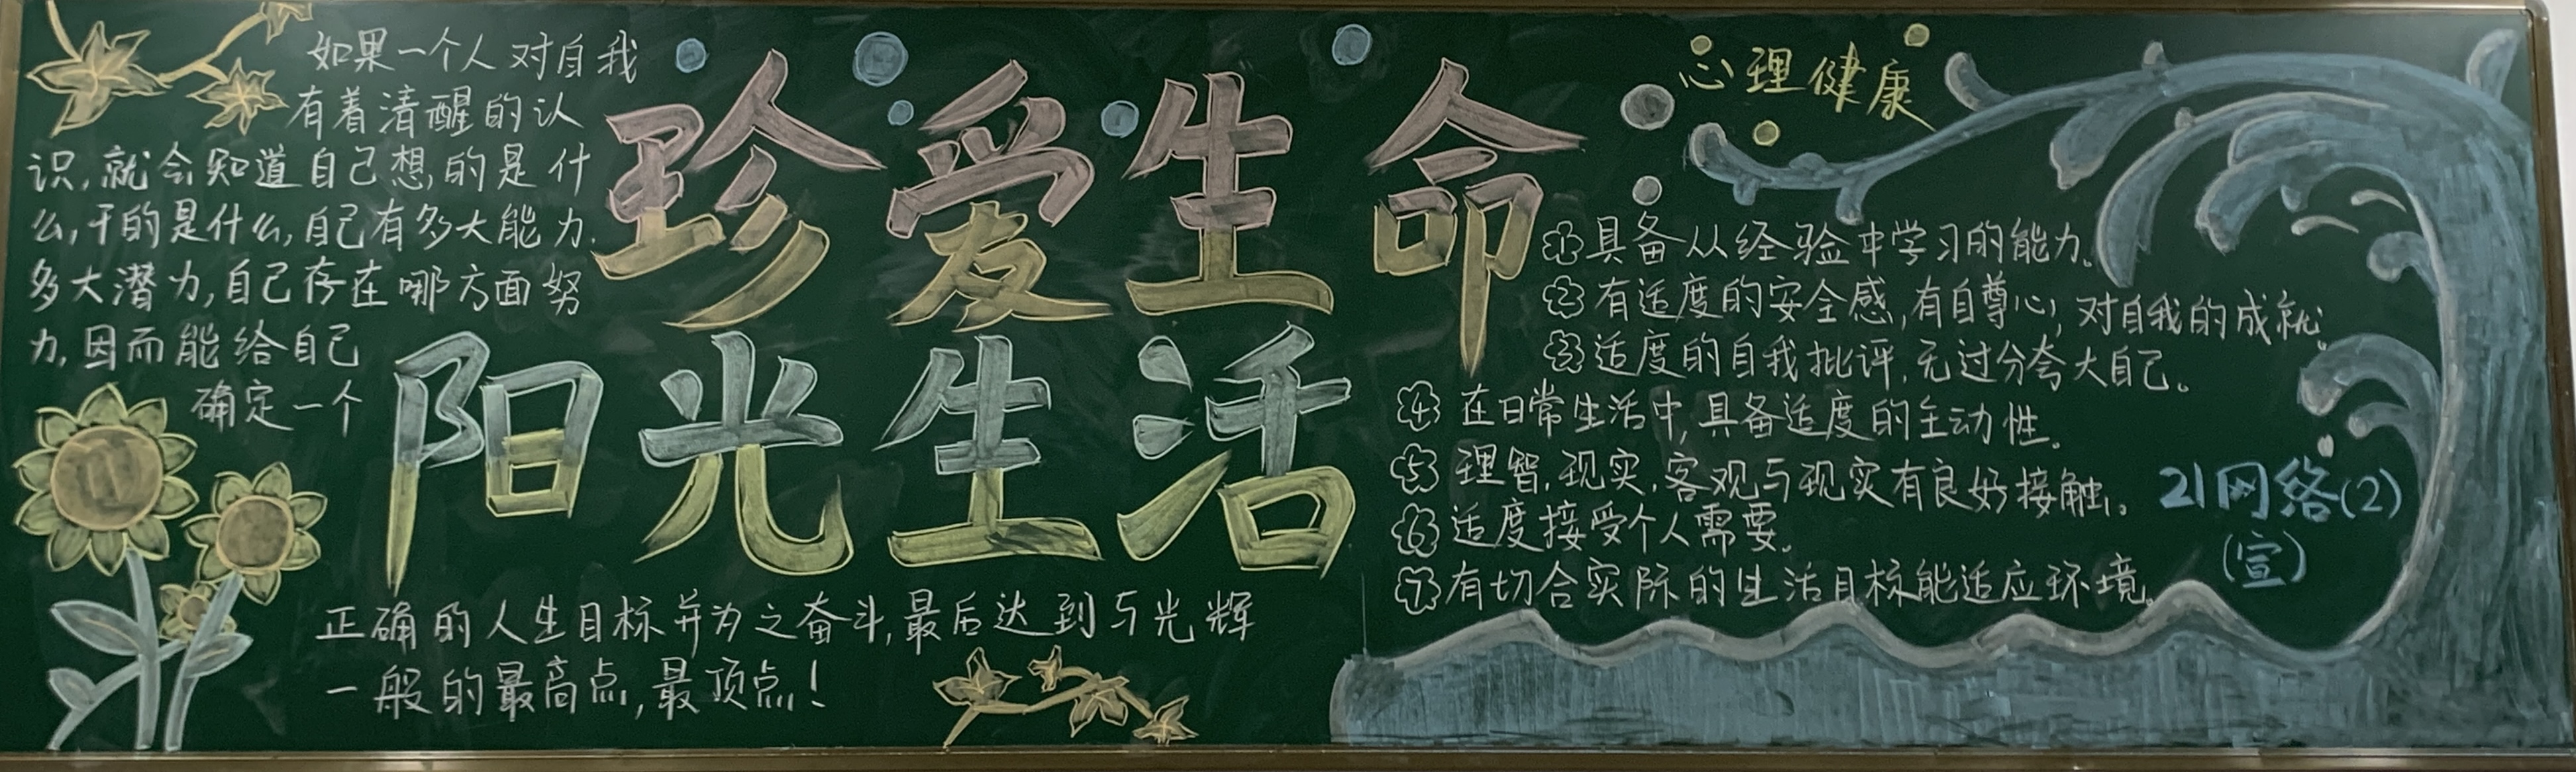 如果一个人对自我
有着清醒的认
识,就会知道自己想的是什
么,干的是什么,自己有多大能力.
多大潜力,自己存在哪方面努
力,因而能给自己
确定一个
正确的人生目标并为之奋斗,最后达到与光辉
一般的最高点,最顶点!
珍爱生命
阳光生活
心理健康
1 具备从经验中学习的能力。
2 有适度的安全感,有自尊心,对自我的成就。
3 适度的自我批评,无过分夸大自己。
4 在日常生活中,具备适度的主动性。
5 理智,现实,客观与现实有良好接触。
6 适度接受个人需要。
7 有切合实际的生活目标能适应环境。
21网络(2)
(宣)